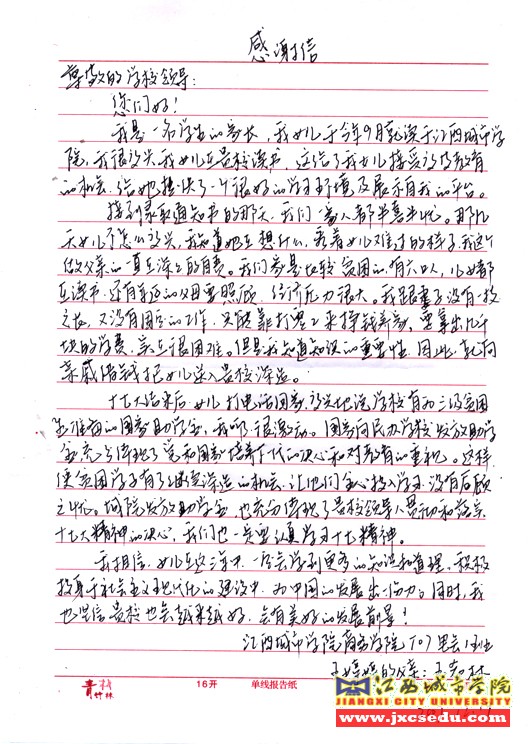 感谢信
尊敬的学校领导：
您们好！
我是一名学生的家长，我女儿于今年9月就读于江西城市学
院，我很高兴我女儿在贵校读书，这给了我女儿接受高等教育
的机会，给她提供了一个很好的学习环境及展示自我的平台。
接到录取通知书的那天，我们一家人都半喜半忧。那几
天女儿不怎么高兴，我知道她在想什么，看着女儿难过的样子，我这个
做父亲的一直在深深的自责。我们家是比较贫困的，有六口人，儿女都
在读书，还有年迈的父母要照顾，经济压力很大。我跟妻子没有一技
之长，又没有固定的工作，只能靠打零工来挣钱养家，要拿出几千
块的学费，实在很困难。但是我知道知识的重要性，因此，我向
亲戚借钱把女儿送入贵校深造。
十七大结束后，女儿打电话回家，高兴地说学校有为三级贫困
生准备的国家助学金，我听了很激动。国家向民办学校发放助学
金，充分体现了党和国家培养下一代的决心和对教育的重视。这样，
使贫困学子有了继续深造的机会，让他们全心投入学习，没有后顾
之忧。城院发放助学金，也充分体现了贵校领导人贯彻和落实
十七大精神的决心，我们也一定要认真学习十七大精神。
我相信，女儿在这三年中，一定会学到更多的知识和道理，积极
投身于社会主义现代化的建设中，为中国的发展出一份力。同时，我
也坚信贵校也会越来越好，会有美好的发展前景！
江西城市学院商学院
的父亲：王
青竹林
16开 单线报告纸
江西城市学院
JIANGXI CITY UNIVERSITY
www.jxcsedu.com